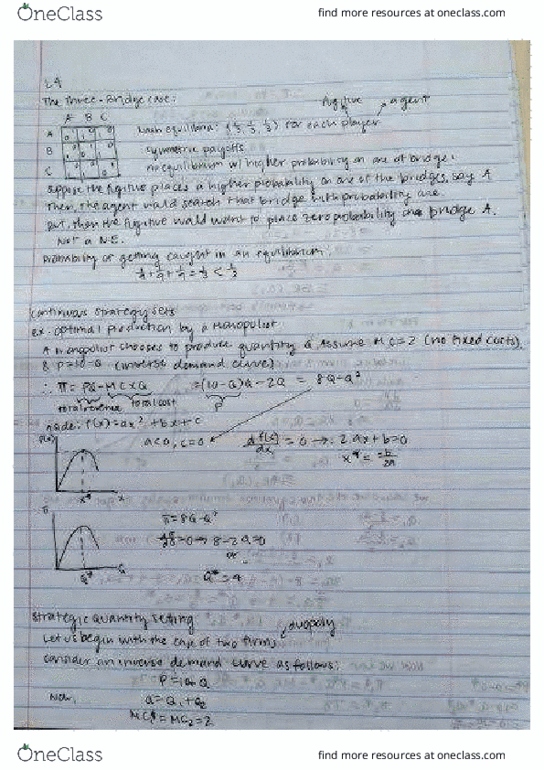 OneClass
find more resources at oneclass.com
L4
The Three-Bridge case:
fugitive agent
A B C
A
B
C
Nash equilibria: (1/3, 1/3, 1/3) for each player
symmetric payoffs
no equilibrium w/ higher probability on one of bridge.
Suppose the fugitive places a higher probability on one of the bridges, say A
Then, the agent would search that bridge with probability one
But, then the fugitive would want to place zero probability on bridge A.
Not a N.E.
Probability of getting caught in an equilibrium:
1/9 + 1/9 + 1/9 = 1/3 < 1/2
Continuous strategy sets
ex: optimal production by a Monopolist
A monopolist chooses to produce quantity Q. Assume MC=2 (no fixed costs),
& P=10-Q (inverse demand curve)
∴ π = PQ - MC×Q = (10-Q)Q - 2Q = 8Q-Q²
total revenue total cost P
node: f(x)=ax²+bx+c
a<0, c=0
df(x)/dx = 0 → 2ax+b=0
x* = -b/2a
f(x)
x* x
π
Q* Q
π=8Q-Q²
dπ/dQ=0 → 8-2Q=0
Q*=4
Strategic Quantity Setting
Let us begin with the case of two firms, duopoly
consider an inverse demand curve as follows:
P=10-Q
Now,
Q=Q₁+Q₂
MC₁=MC₂=2
OneClass
find more resources at oneclass.com